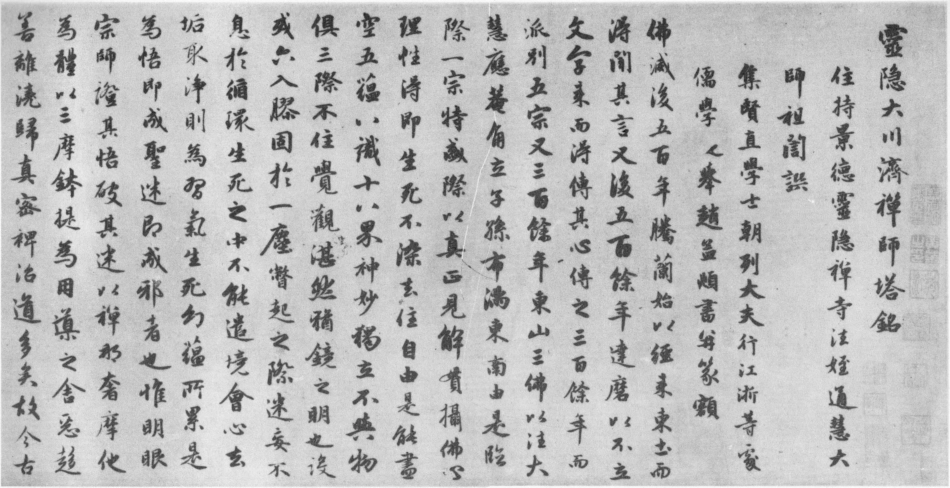 靈隐大川濟禅師塔銘
住持景德靈隐禅寺法姪道慧大
師祖誾譔
集賢直學士朝列大夫行江浙等處
儒學提舉趙孟頫書并篆額
佛滅後五百年騰蘭始以經来東土而
得聞其言又後五百餘年達磨以不立
文字来而得傳其心傳之三百餘年而
派別五宗又三百餘年東山三佛以法大
慧應菴角立子孫布満東南由是臨
際一宗特盛際以真正見解貫攝佛心
理性得即生死不染去住自由是能盡
空五藴八識十八界神妙獨立不與物
俱三際不住覺觀湛然猶鏡之明也後
或六入膠固於一塵瞥起之際迷妄不
息於循環生死之中不能遣境會心去
垢取淨則為習氣生死幻藴所累是
為悟即成聖迷即成邪者也惟明眼
宗師證其悟破其迷以禅那奢摩他
為體以三摩鉢提為用導之含惡趍
善離澆歸真密裨治道多矣故今古